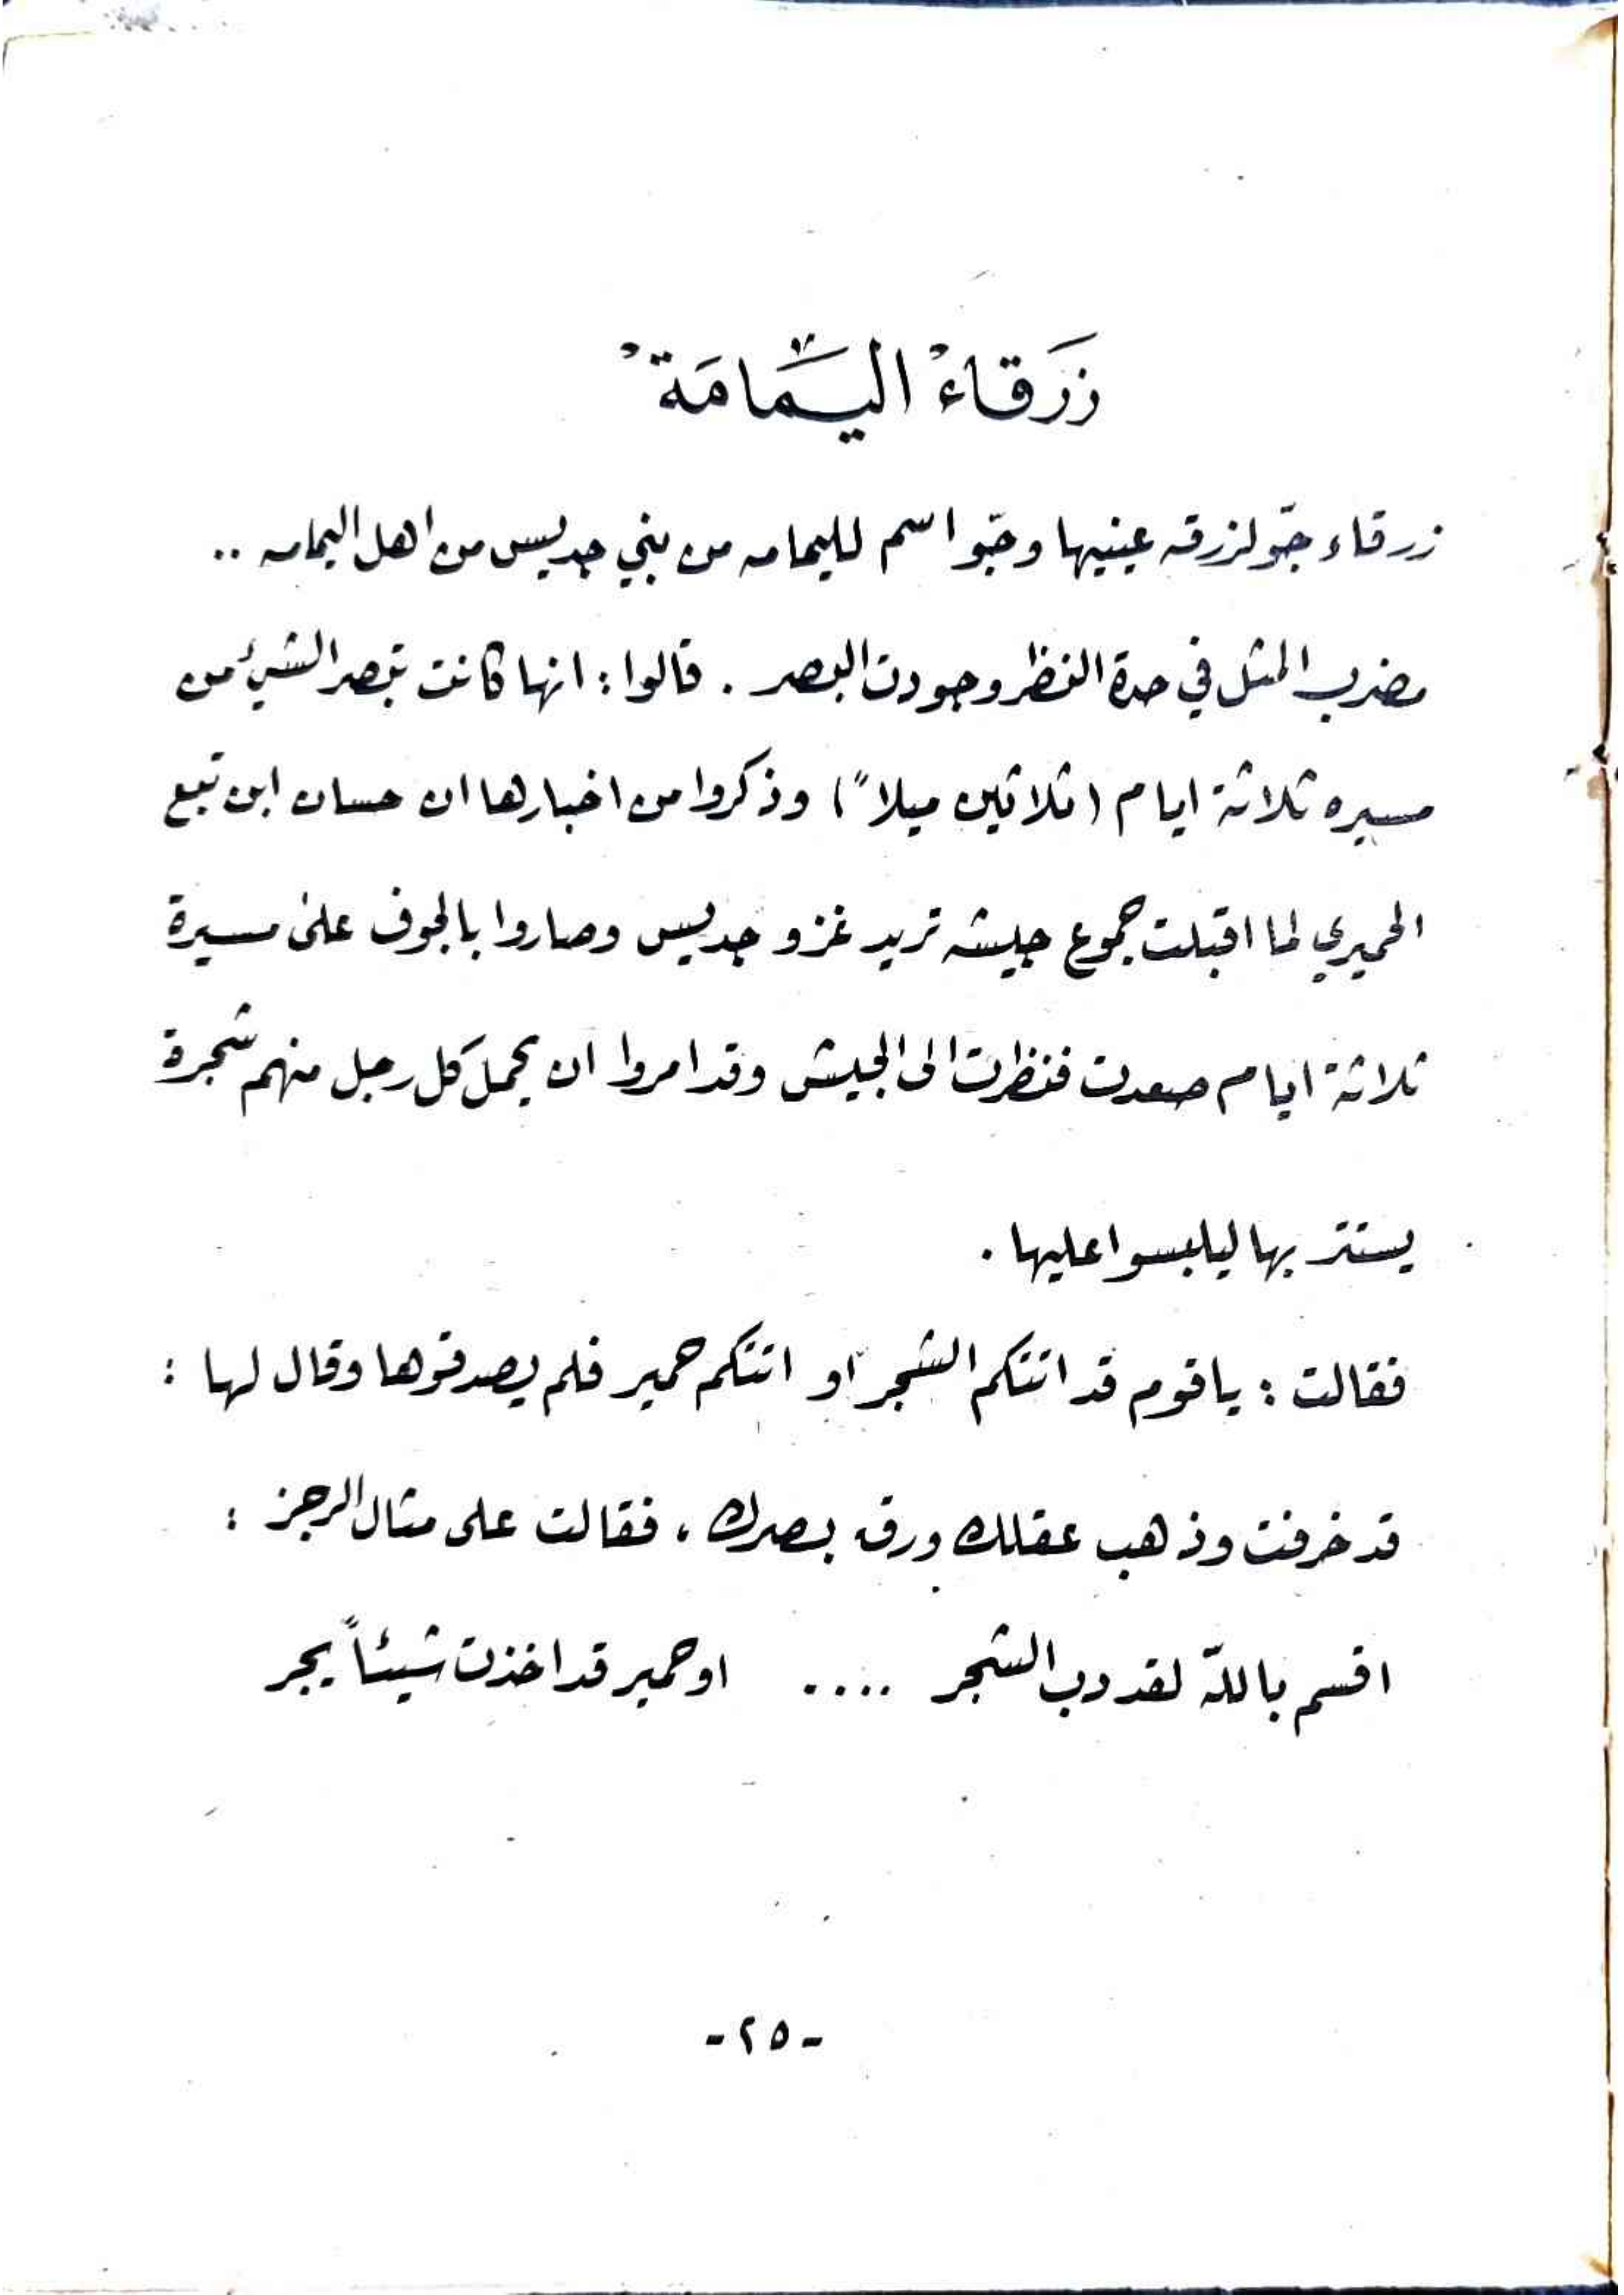 زَرَقاءْ اليَمَامَةْ
زرقاء جّو لزرقه عينيها وجّو اسم لليمامه من بني جديس من اهل اليمامه ..
مضرب المثل في حدة النظر وجودت البصر . قالوا : انها كانت تبصر الشيئ من
مسيره ثلاثة ايام ( ثلاثين ميلاً ) وذكروا من اخبارها ان حسان ابن تبع
الحميري لما اقبلت جموع جيشه تريد غزو جديس وصاروا بالجوف على مسيرة
ثلاثة ايام صعدت فنظرت الى الجيش وقد امروا ان يحمل كل رجل منهم شجرة
يستتر بها ليلبسوا عليها .
فقالت : يا قوم قد اتتكم الشجر او اتتكم حمير فلم يصدقوها وقال لها :
قد خرفت وذهب عقلك ورق بصرك ، فقالت على مثال الرجز :
اقسم باللّه لقد دب الشجر .... او حمير قد اخذت شيئاً يجر
- ٢٥ -